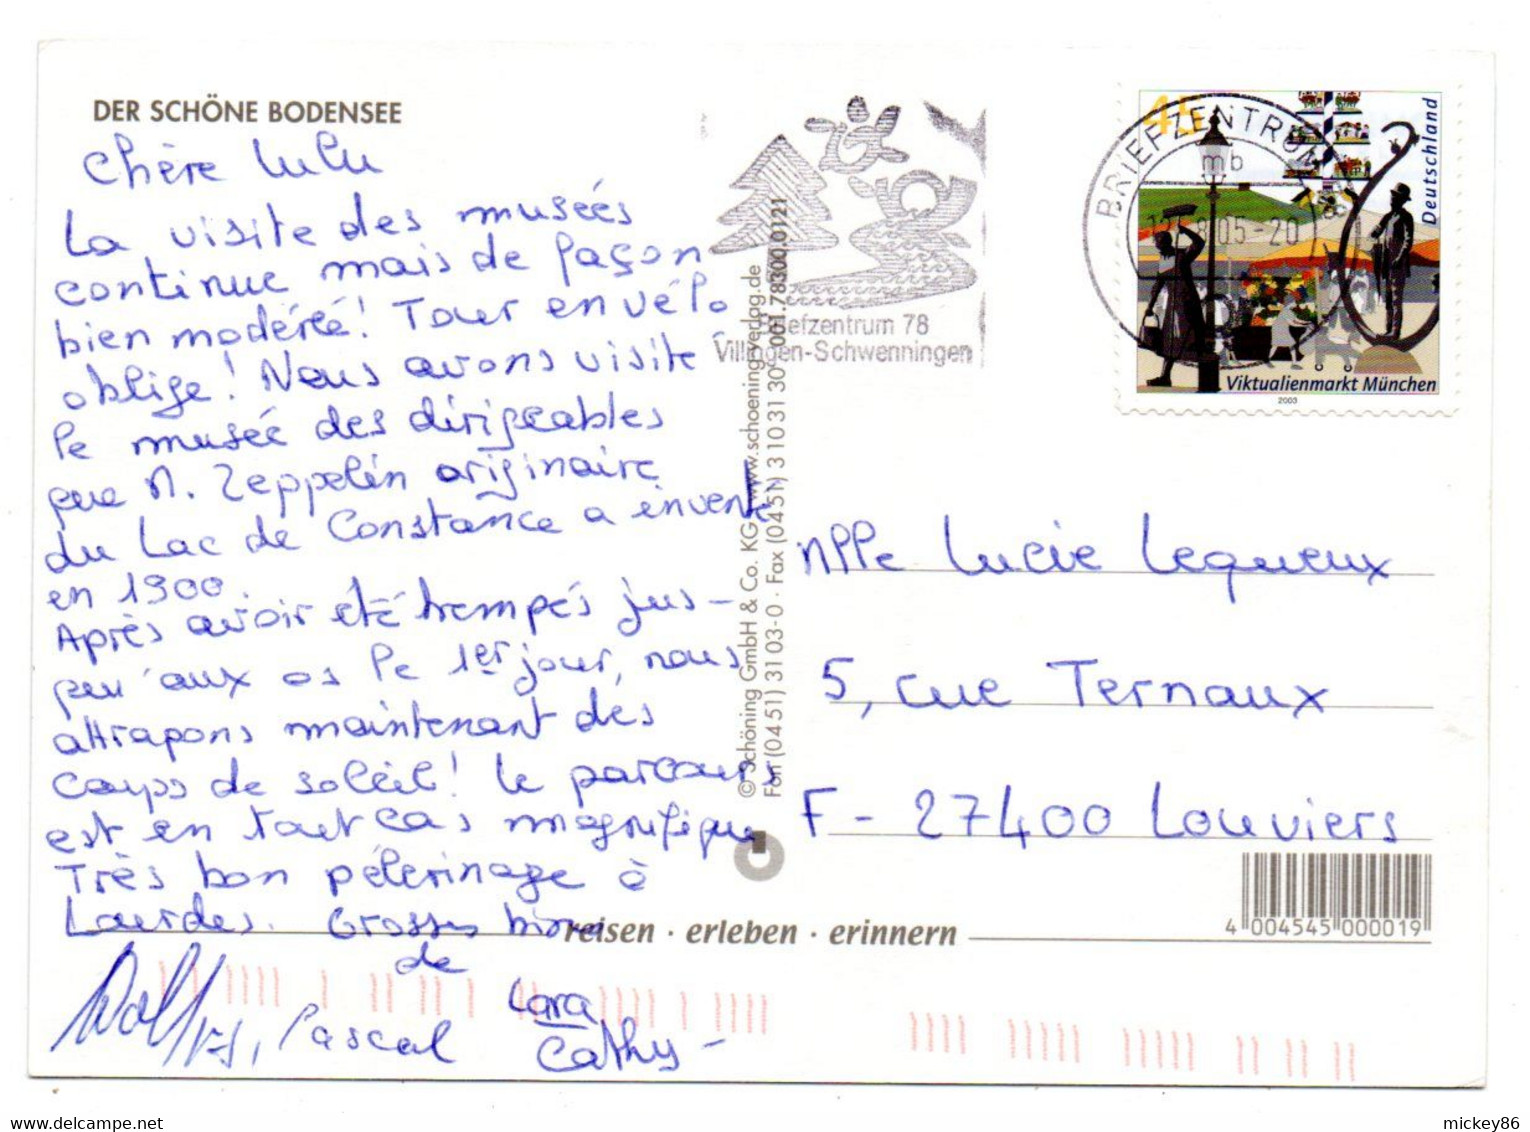 DER SCHÖNE BODENSEE
Chère Lulu
La visite des musées
continue mais de façon
bien modérée! Tour en vélo
oblige! Nous avons visité
le musée des dirigeables
que M. Zeppelin originaire
du Lac de Constance a inventé
en 1900.
Après avoir été trempés jus-
qu'aux os le 1er jour, nous
attrapons maintenant des
coups de soleil! Le parcours
est en tout cas magnifique
Très bon pélerinage à
Lourdes. Grosses bises
de
Lara
Pascal
Cathy -
© Schöning GmbH & Co. KG · www.schoening-verlag.de
Fon (0451) 3103-0 · Fax (0451) 3103130 001.78300.0121
Briefzentrum 78
Villingen-Schwenningen
BRIEFZENTRUM
mb
05-20
45
Deutschland
Viktualienmarkt München
2003
Mlle Lucie Lequeux
5, rue Ternaux
F - 27400 Louviers
4 004545 000019
reisen · erleben · erinnern
mickey86